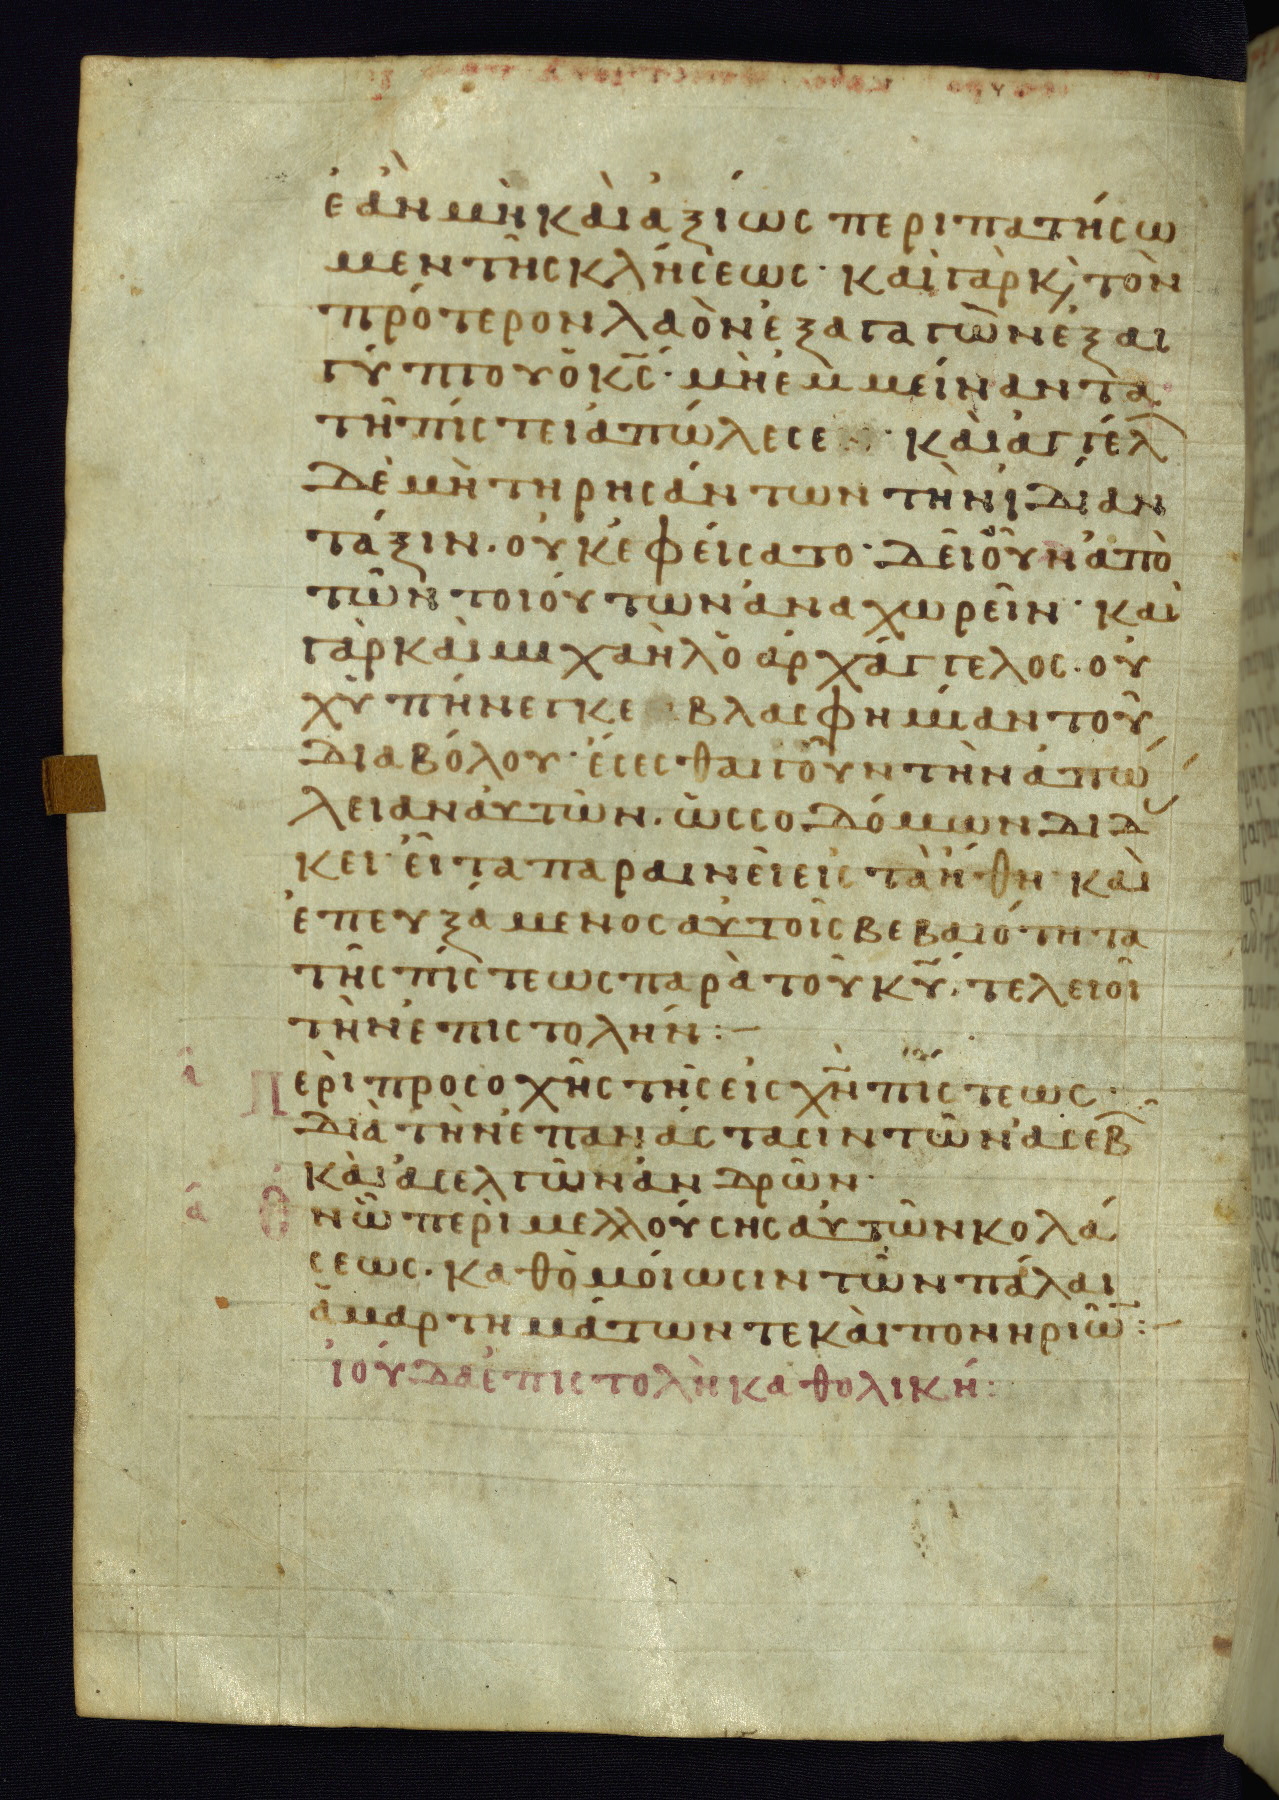 ἐὰν μὴ καὶ ἀξίως περιπατήσω
μεν τῆς κλήσεως· καὶ γὰρ κ(αὶ) τὸν
πρότερον λαὸν ἐξαγαγὼν ἐξ αι
γύπτου ὁ κ̅ς̅· μὴ ἐμμείναντα
τῆ πίστει ἀπώλεσε· καὶ ἀγγέλ
δὲ μὴ τηρησάντων τὴν ἰδίαν
τάξιν· οὐκ ἐφείσατο· δεῖ οὖν ἀπὸ
τῶν τοιούτων ἀναχωρεῖν· καὶ
γὰρ καὶ μιχαὴλ ὁ ἀρχάγγελος· οὐ
χ ὑπήνεγκε βλασφημίαν τοῦ
διαβόλου· ἔσεσθαι γοῦν τὴν ἀπώ
λειαν αὐτῶν· ὡς σοδόμων διδ
κει· εἶτα παραινεῖ εἰς τὰ ἤθη· καὶ
ἐπευξάμενος αὐτοῖς βεβαιότητα
τῆς πίστεως παρὰ τοῦ κ̅υ̅· τελειοῖ
τὴν ἐπιστολήν:—
α Περὶ προσοχῆς τῆς εἰς χ̅ν̅ πίστεως·
διὰ τὴν ἐπανάστασιν τῶν ἀσεβ
καὶ ἀσελγῶν ἀνδρῶν·
α ἐν ὧ περὶ μελλούσης αὐτῶν κολά
σεως· καθ' ὁμοίωσιν τῶν πάλαι
ἁμαρτημάτων τε καὶ πονηριῶ̅:—
ἰούδα ἐπιστολὴ καθολική: